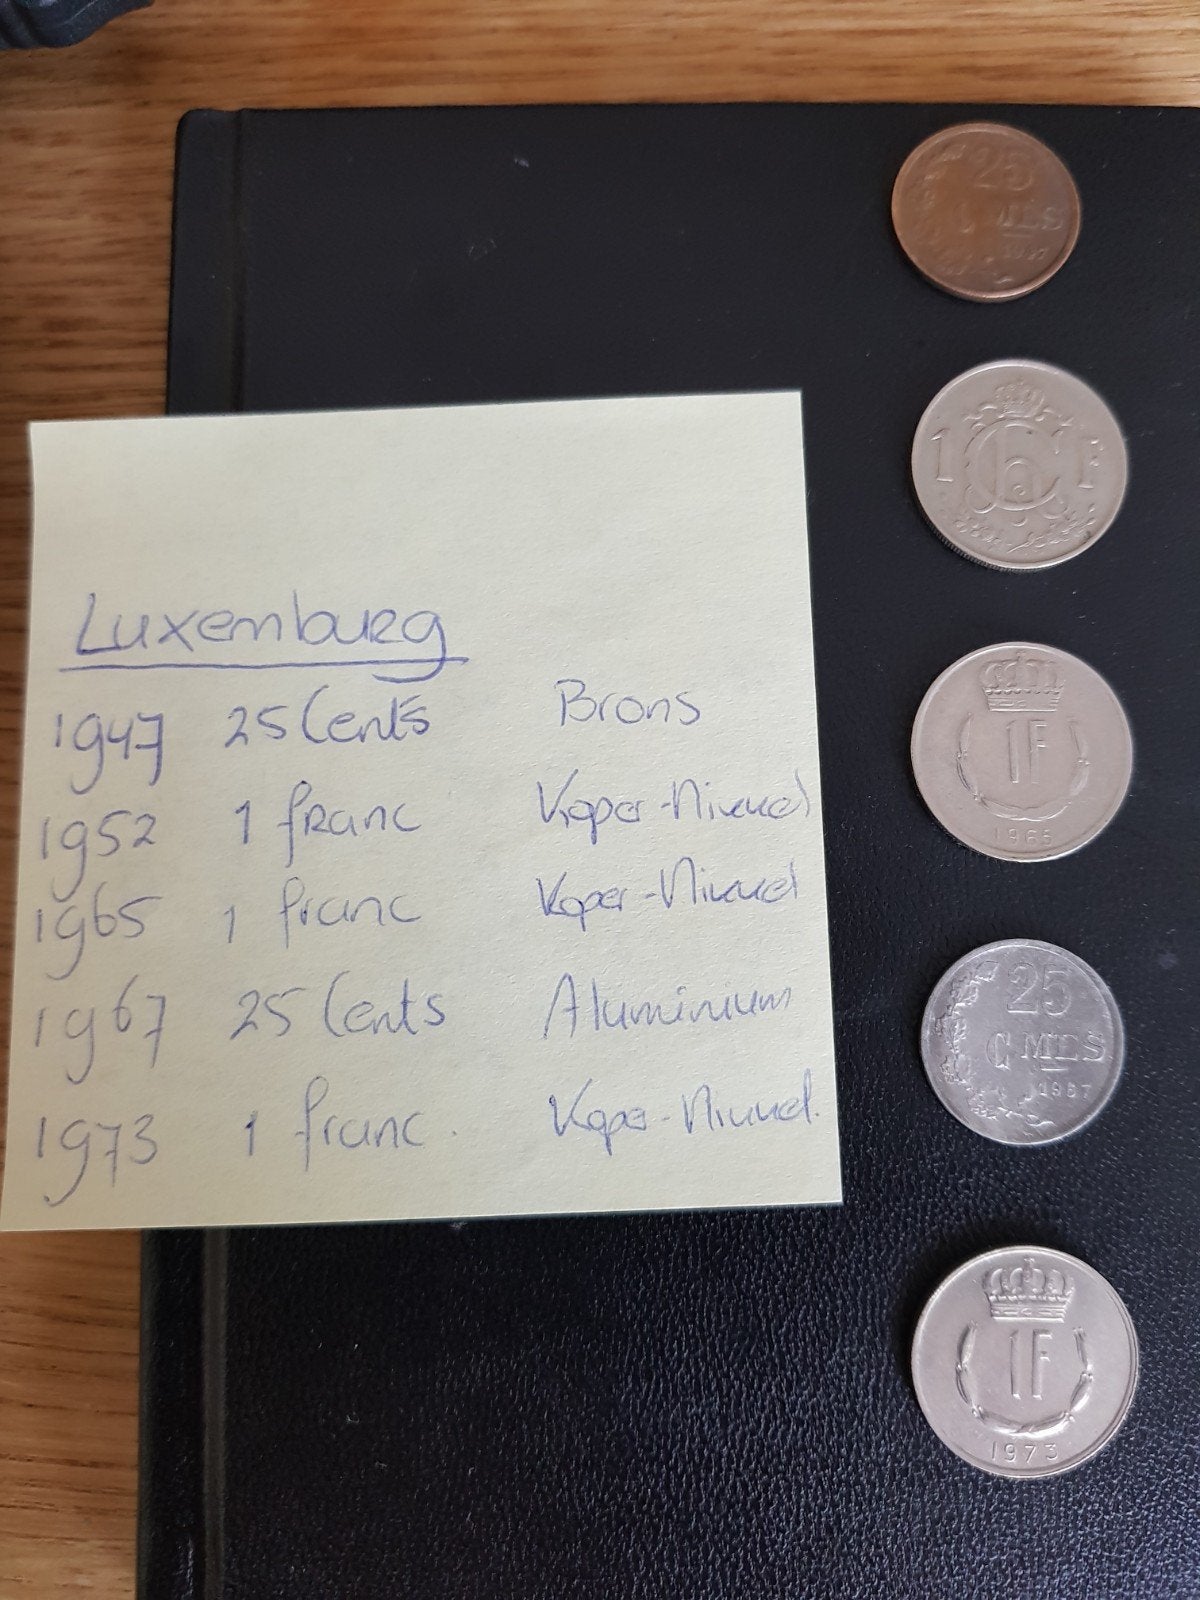 Luxemburg
1947 25 Cents Brons
1952 1 franc Koper-Nikkel
1965 1 franc Koper-Nikkel
1967 25 Cents Aluminium
1973 1 franc. Koper-Nikkel.
25
CMES
1947
1 F
1F
1965
25
CMES
1967
1F
1973